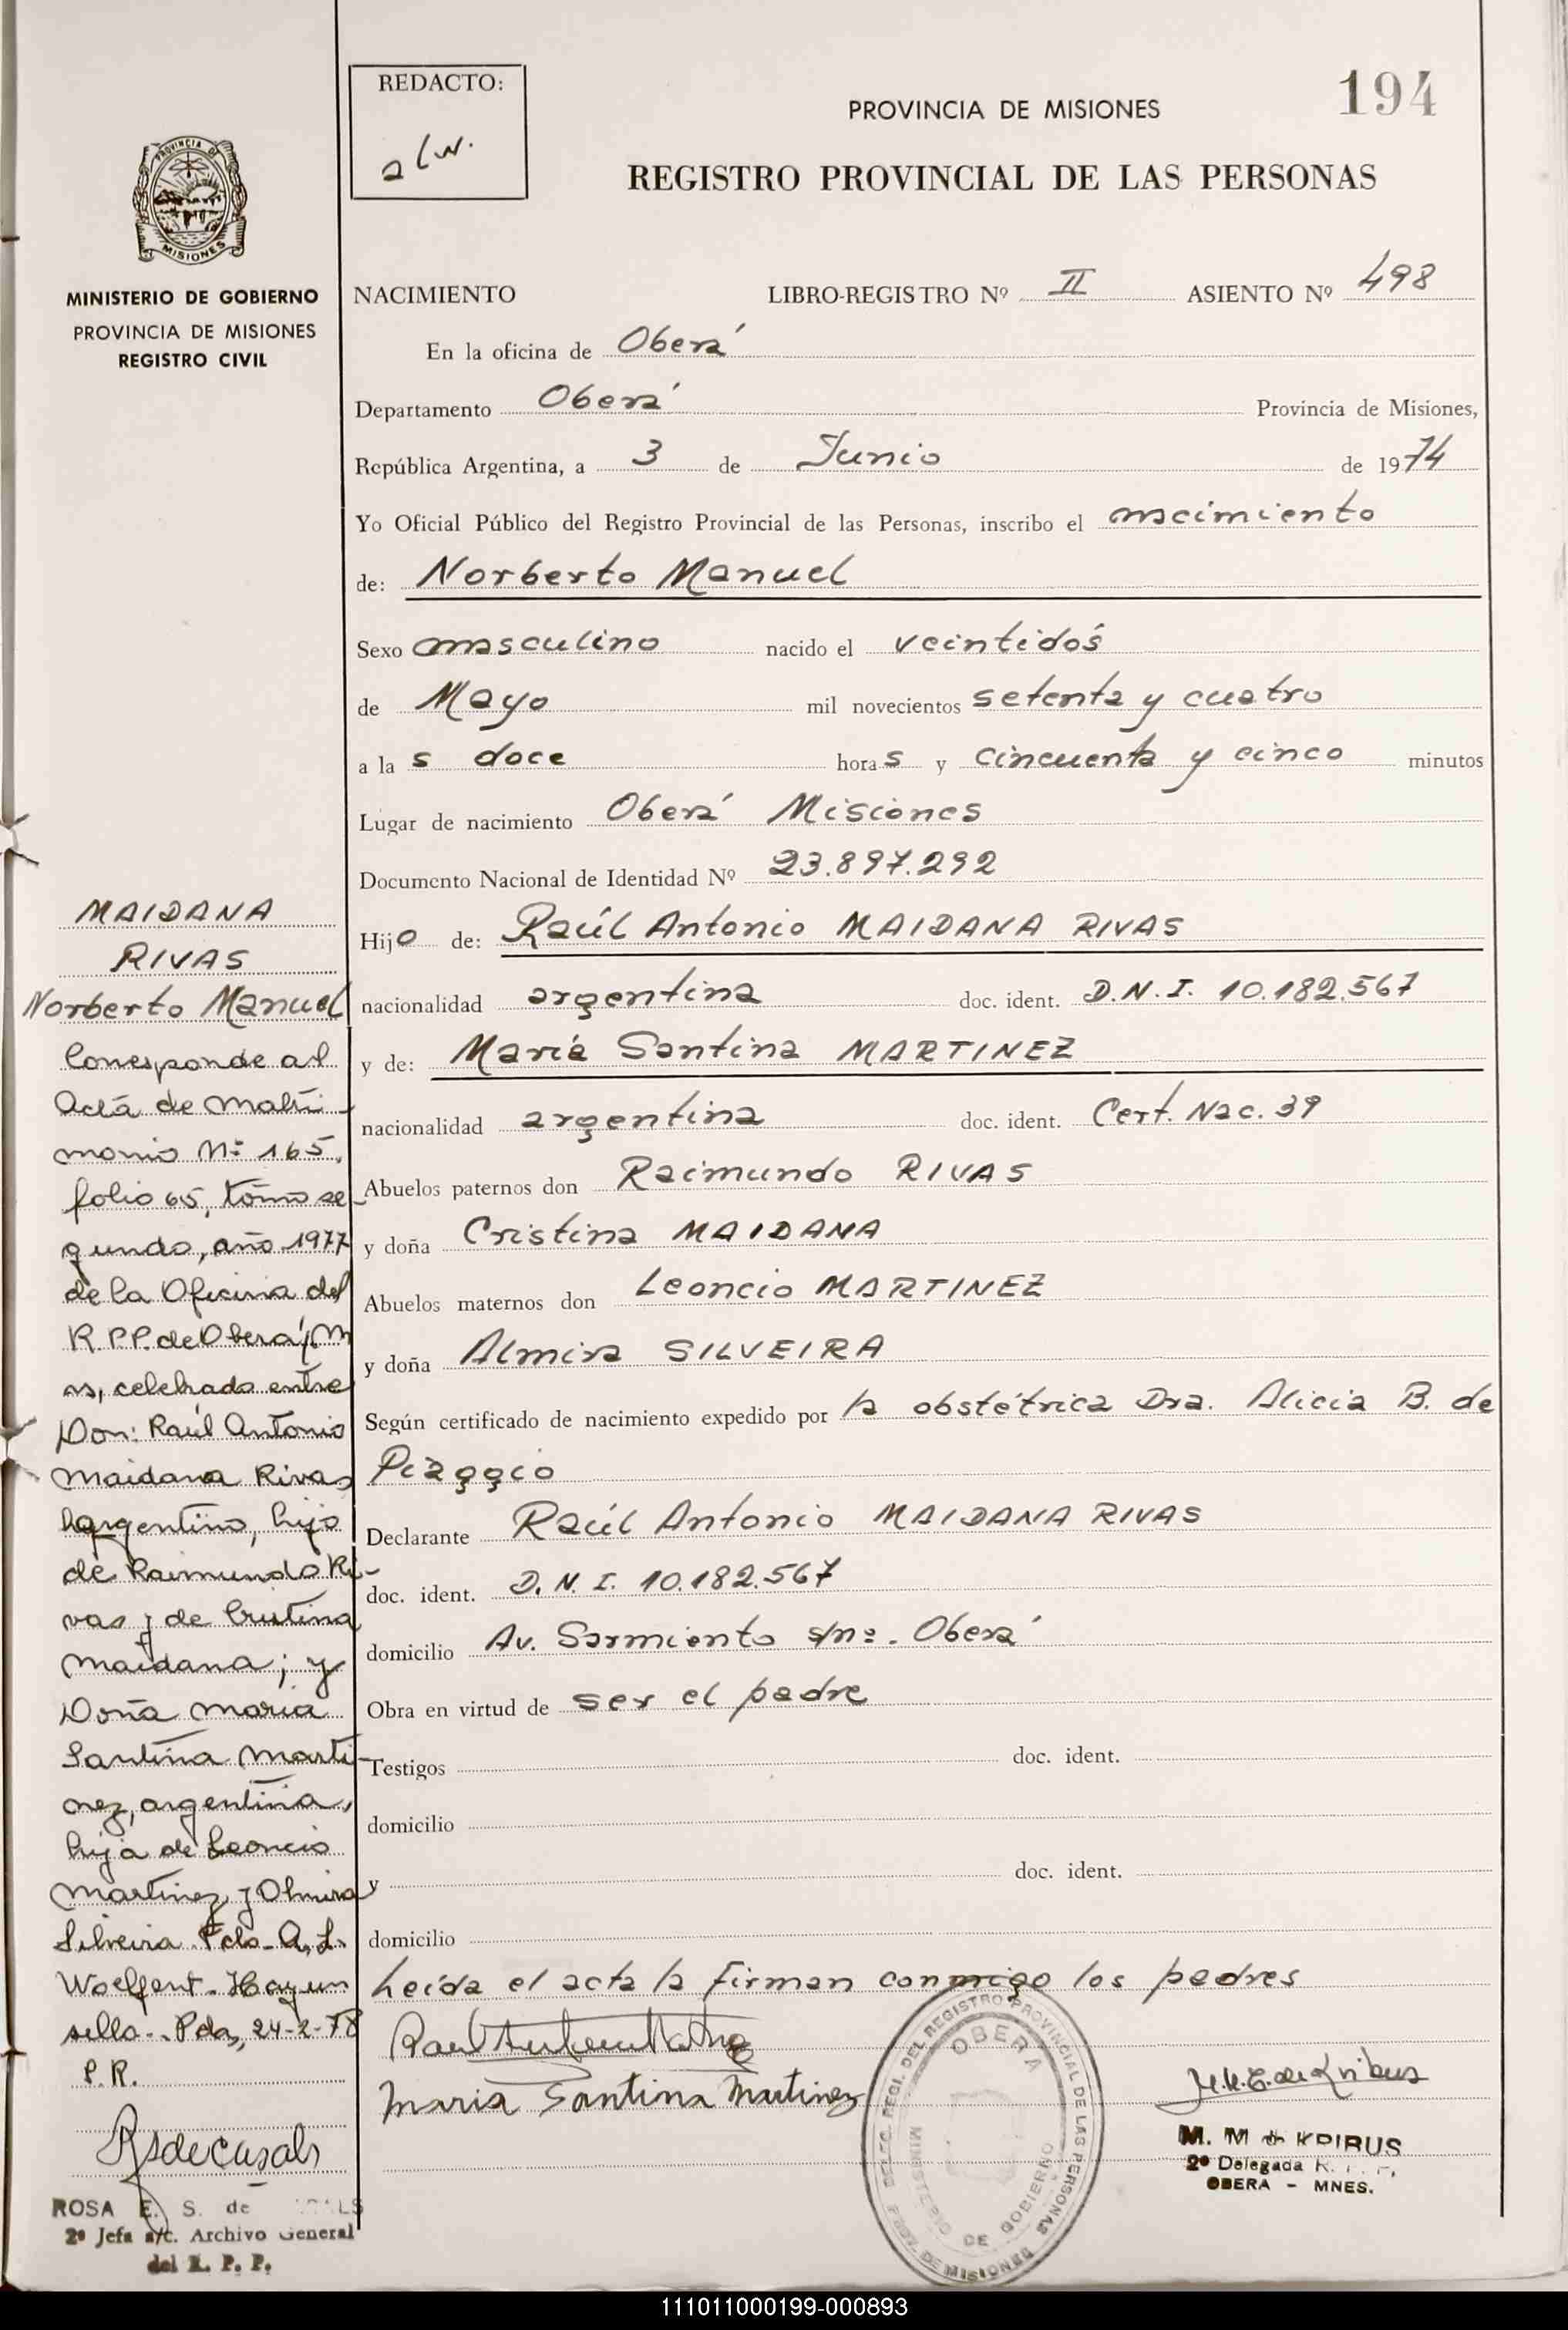 REDACTO:
alw.
194
PROVINCIA DE MISIONES
REGISTRO PROVINCIAL DE LAS PERSONAS
PROVINCIA DE
MISIONES
MINISTERIO DE GOBIERNO
PROVINCIA DE MISIONES
REGISTRO CIVIL
NACIMIENTO LIBRO-REGISTRO Nº II ASIENTO Nº 498
En la oficina de Oberá
Departamento Oberá Provincia de Misiones,
República Argentina, a 3 de Junio de 1974
Yo Oficial Público del Registro Provincial de las Personas, inscribo el nacimiento
de: Norberto Manuel
Sexo masculino nacido el veintidós
de Mayo mil novecientos setenta y cuatro
a las doce horas y cincuenta y cinco minutos
Lugar de nacimiento Oberá Misiones
Documento Nacional de Identidad Nº 23.897.292
Hijo de: Raúl Antonio MAIDANA RIVAS
nacionalidad argentina doc. ident. D.N.I. 10.182.567
y de: María Santina MARTINEZ
nacionalidad argentina doc. ident. Cert. Nac. 39
Abuelos paternos don Raimundo RIVAS
y doña Cristina MAIDANA
Abuelos maternos don Leoncio MARTINEZ
y doña Almira SILVEIRA
Según certificado de nacimiento expedido por la obstétrica Dra. Alicia B. de
Piaggio
Declarante Raúl Antonio MAIDANA RIVAS
doc. ident. D.N.I. 10.182.567
domicilio Av. Sarmiento s/nº. Oberá
Obra en virtud de ser el padre
Testigos doc. ident.
domicilio
y doc. ident.
domicilio
Leída el acta la firman conmigo los padres
Maria Santina Martinez
DELEG. REGI. DEL REGISTRO PROVINCIAL DE LAS PERSONAS
OBERA
MINISTERIO DE GOBIERNO
PROV. DE MISIONES
2º Delegada R. P. P.
OBERA - MNES.
MAIDANA
RIVAS
Norberto Manuel
Corresponde al
Acta de Matri
monio Nº 165,
folio 65, tomo se
gundo, año 1977
de la Oficina del
R.P.P. de Oberá, M
ns, celebrado entre
Don: Raúl Antonio
Maidana Rivas
argentino, hijo
de Raimundo Ri-
vas y de Cristina
Maidana; y
Doña Maria
Santina Marti-
nez, argentina,
hija de Leoncio
Martinez y Olmira
Silveira Fdo. A. L.
Woelfert. Hay un
sello. Pdas, 24-2-78
P.R.
RSdeCasals
ROSA E. S. de
2º Jefa a/c. Archivo General
del R. P. P.
111011000199-000893